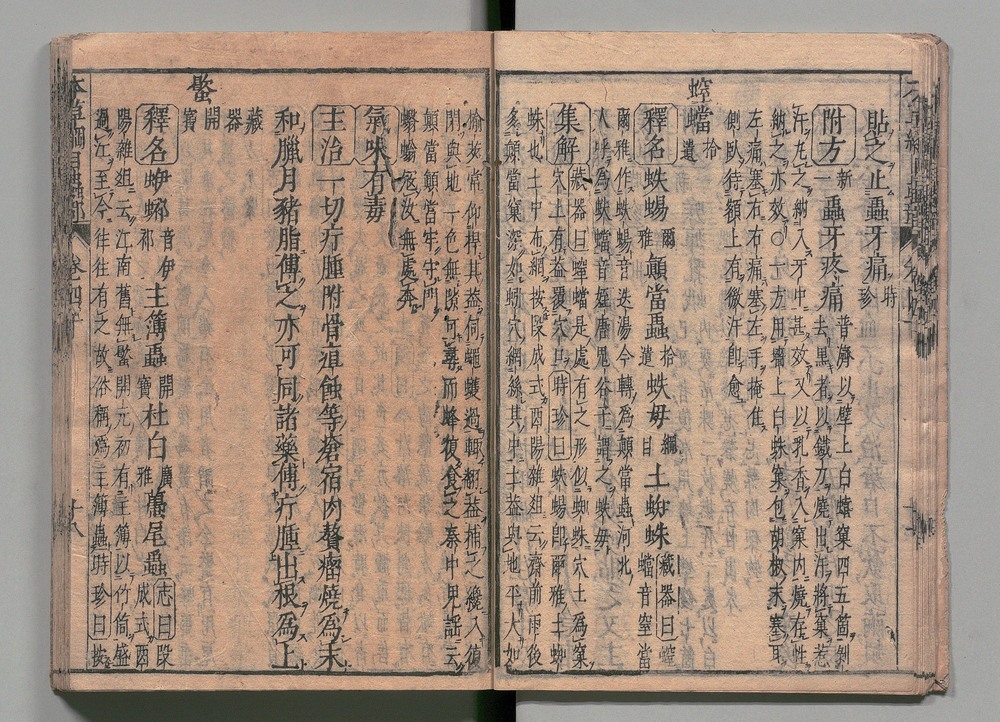 貼之止蟲牙痛時珍
附方新一蟲牙疼痛普濟以壁上白蟢窠四五箇剝
去黑者以鐵刀燒出汗將窠惹
汗丸之納入牙中甚效又以乳香入窠內燒存性
納之亦效○一方用牆上白蛛窠包胡椒末塞耳
左痛塞右右痛塞左手掩住
側臥待額上有微汗卽愈
螲蟷拾遺
釋名蛈蝪爾雅顛當蟲拾遺蛈母綱目土蜘蛛藏器曰螲
蟷音窒當
爾雅作蛈蝪音迭湯今轉爲顛當蟲河北
人呼爲蛈蟷音姪唐鬼谷子謂之蛈母
集解藏器曰螲蟷是處有之形似蜘蛛穴土爲窠
穴上有蓋覆穴口時珍曰蛈蝪卽爾雅土蜘
蛛也土中布網按段成式酉陽雜俎云齋前雨後
多顛當窠深如蚓穴網絲其中土蓋與地平大如
榆莢常仰捍其蓋伺蠅蠖過輒翻蓋捕之纔入復
閉與地一色無隙可尋而蜂復食之秦中兒謠云
顛當顛當牢守門
蠮螉寇汝無處奔
氣味有毒
主治一切疔腫附骨疽蝕等瘡宿肉贅瘤燒爲末
和臘月豬脂傅之亦可同諸藥傅疔腫出根爲上
藏器
䘌開寶
釋名蛜𧌴音伊祁主簿蟲開寶杜白廣雅蠆尾蟲志曰段
成式酉
陽雜俎云江南舊無䘌開元初有主簿以竹筒盛
過江至今往往有之故俗稱爲主簿蟲時珍曰按
本草綱目蟲部 卷四十 十八